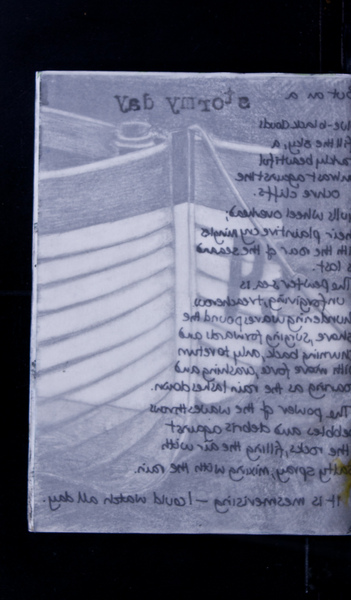 Out on a
stormy day
ue-black clouds
fill the sky, a
arkly beautiful
canvas against the
ochre cliffs.
ulls wheel overhead,
their plaintive cry mingles
ith the roar of the sea and
is lost.
The sea is
unforgiving, treacherous
hundering waves pound the
shore, surging forwards and
running back, only to return
with more force, washing and
roaring as the rain lashes down.
The power of the waves throws
pebbles and debris against
the rocks, filling the air with
salty spray, mixing with the rain.
It is mesmerising – I could watch all day.